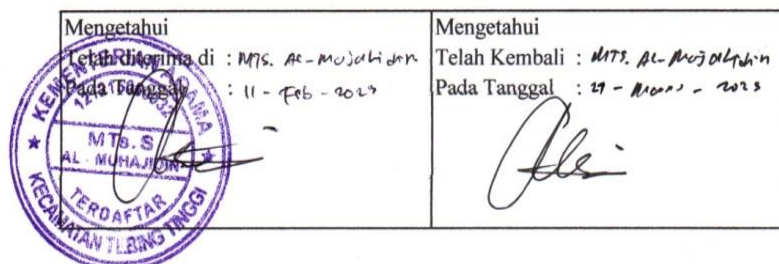 Mengetahui
Telah diterima di : MTS. AL-Mujahidin
Pada Tanggal : 11 - Feb - 2023
Mengetahui
Telah Kembali : MTS. AL-Mujahidin
Pada Tanggal : 29 - - 2023
KEMENTERIAN AGAMA
MTs.S
AL - MUHAJIDIN
TERDAFTAR
KECAMATAN TEBING TINGGI